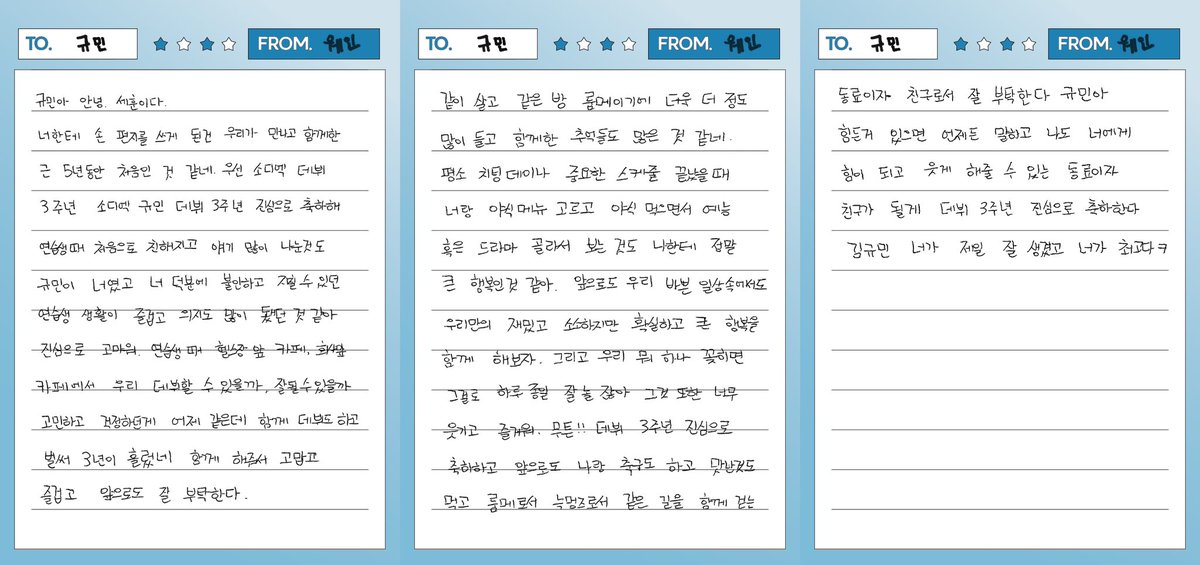 TO. 규민
FROM. 웨인
규민아 안녕. 세훈이다.
너한테 손 편지를 쓰게 된건 우리가 만나고 함께한
근 5년동안 처음인 것 같네. 우선 소디엑 데뷔
3주년 소디엑 규민 데뷔 3주년 진심으로 축하해
연습생때 처음으로 친해지고 얘기 많이 나눈것도
규민이 너였고 너 덕분에 불안하고 힘들 수 있던
연습생 생활이 즐겁고 의지도 많이 됐던 것 같아
진심으로 고마워. 연습생 때 헬스장 앞 카페, 회사앞
카페에서 우리 데뷔할 수 있을까, 잘될수있을까
고민하고 걱정하던게 어제 같은데 함께 데뷔도 하고
벌써 3년이 흘렀네 함께 해줘서 고맙고
즐겁고 앞으로도 잘 부탁한다.
TO. 규민
FROM. 웨인
같이 살고 같은 방 룸메이기에 더욱 더 정도
많이 들고 함께한 추억들도 많은 것 같네.
평소 치팅데이나 중요한 스케줄 끝났을때
너랑 야식메뉴 고르고 야식 먹으면서 예능
혹은 드라마 골라서 보는 것도 나한테 정말
큰 행복인것 같아. 앞으로도 우리 바쁜 일상속에서도
우리만의 재밌고 소소하지만 확실하고 큰 행복을
함께 해보자. 그리고 우리 뭐 하나 꽂히면
그걸로 하루 종일 잘 놀 잖아 그것 또한 너무
웃기고 즐거워. 무튼!! 데뷔 3주년 진심으로
축하하고 앞으로도 나랑 축구도 하고 맛난것도
먹고 룸메로서 늑멍즈로서 같은 길을 함께 걷는
TO. 규민
FROM. 웨인
동료이자 친구로서 잘 부탁한다 규민아
힘든거 있으면 언제든 말하고 나도 너에게
힘이 되고 웃게 해줄 수 있는 동료이자
친구가 될게 데뷔 3주년 진심으로 축하한다
김규민 너가 제일 잘 생겼고 너가 최고다ㅋ